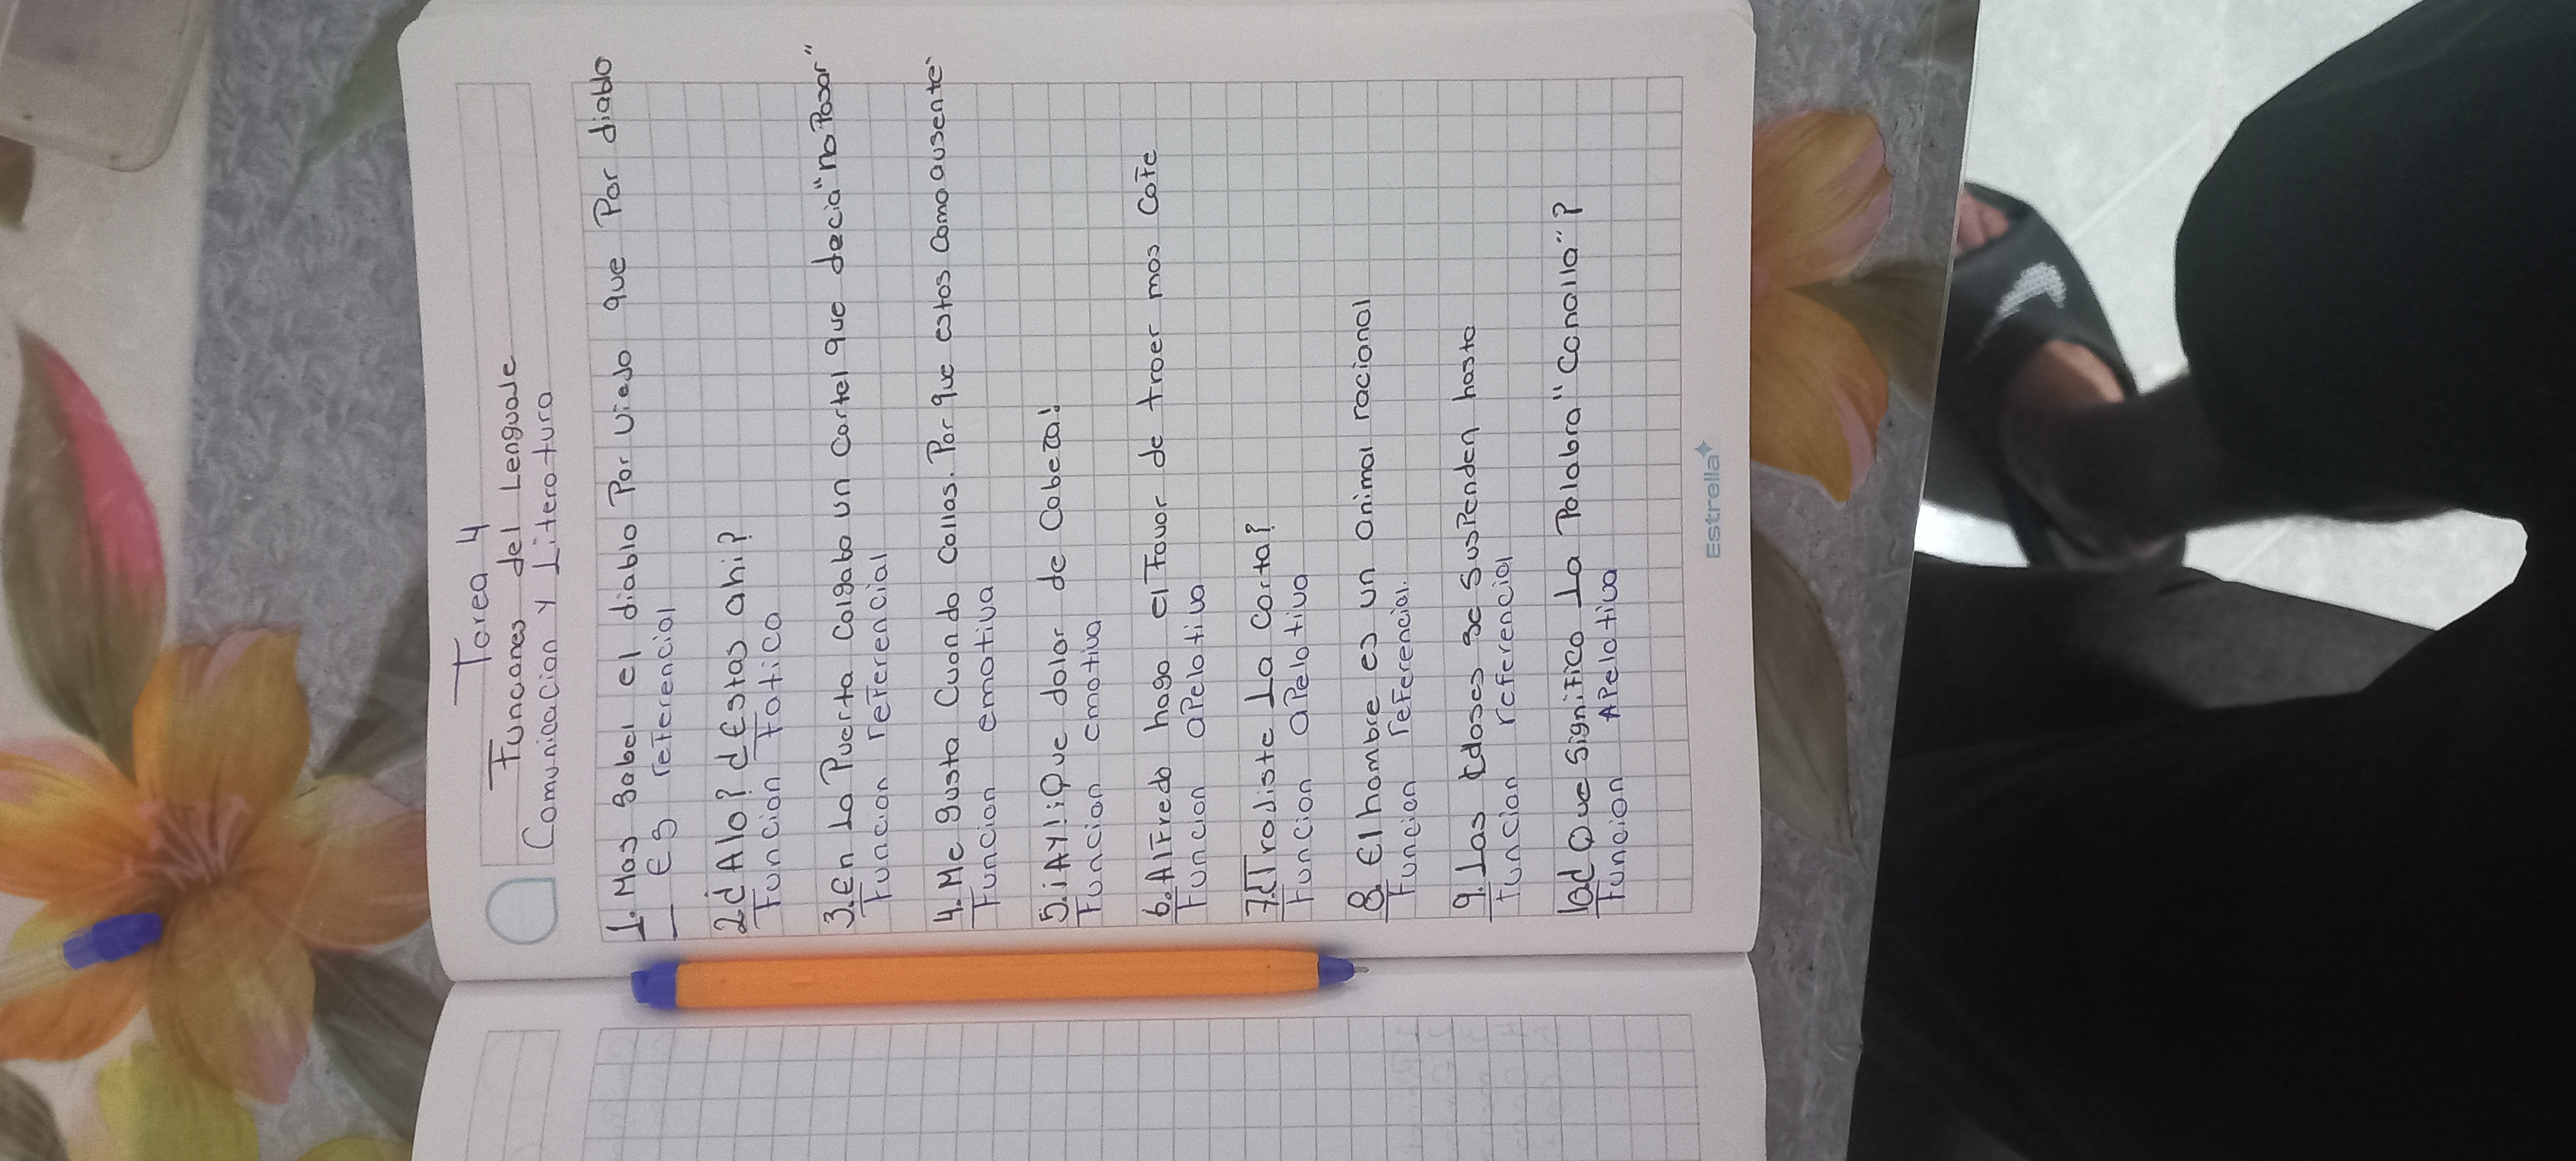 Tarea 4
Funcones del Lenguaje
Comunicacion y Literatura
1. Mas sabel el diablo Por viejo que Por diablo
— Es referencial
2 ¿Alo? ¿Estas ahi?
Funcion Fatica
3. En La Puerta Colgaba un Cartel que decia "no Pasar"
Funcion referencial
4. Me gusta Cuando Callas. Por que estas Como ausente
Funcion emotiva
5. ¡Ay! ¡Que dolor de Cabeza!
Funcion emotiva
6. Alfredo haga el Favor de traer mas Cafe
Funcion apelativa
7. ¿Trajiste La Carta?
Funcion apelativa
8. El hombre es un animal racional
Funcion referencial.
9. Las clases se suspenden hasta
funcion referencial
10 ¿ Que significa La Palabra "Canalla"?
Funcion Apelativa
Estrella